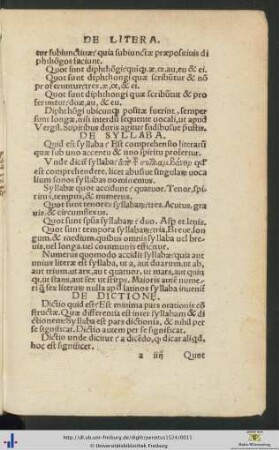 DE LITERA.
tur subiunctiuæ? quia subiunctæ præpositiuis di
phthōgos faciunt.
Quot sunt diphthōgi? quīq; æ, œ, au, eu & ei.
Quot sunt diphthongi quæ scribūtur & nō
proferuntur? tres, æ, œ, & ei.
Quot sunt diphthongi quæ scribūtur & pro
feruntur? duæ, au, & eu.
Diphthōgi ubicunq; positæ fuerint, semper
sunt longæ, nisi interdū sequente uocali, ut apud
Vergil. Stipitibus duris agitur sudibusue præustis.
DE SYLLABA.
Quid est syllaba? Est comprehensio literarū
quæ sub uno accentu & uno spiritu profertur.
Vnde dicit̄ syllaba? qđ
est comprehendere, licet abusiue singulas uoca
lium sonos syllabas nominemus.
Syllabæ quot accidunt? quatuor. Tenor, spi
ritus, tempus, & numerus.
Quot sunt tenores syllabarū? tres. Acutus, gra
uis, & circumflexus.
Quot sunt spūs syllabaȩ? duo. Asp. et lenis.
Quot sunt tempora syllabarū? tria. Breue, lon
gum, & medium. quibus omnis syllaba uel bre
uis, uel longa, uel communis efficitur.
Numerus quomodo accidit syllabæ? quia aut
unius literæ est syllaba, ut a, aut duarum, ut ab,
aut trium ut arx, aut quatuor, ut mars, aut quin
q; ut stans, aut sex ut stirps. Maioris autē nume
ri q̄ sex literarū nulla apd latinos syllaba inuenit̄
DE DICTIONE.
Dictio quid est? Est minima pars orationis cō
structæ. Quæ differentia est inter syllabam & di
ctionem? Syllaba est pars dictionis, & nihil per
se significat. Dictio autem per se significat.
Dictio unde dicitur? a dicēdo, q dicat aliqd,
hoc est significet.
a iij Quot
http://dl.ub.uni-freiburg.de/diglit/perottus1524/0011
© Universitätsbibliothek Freiburg
Baden-Württemberg